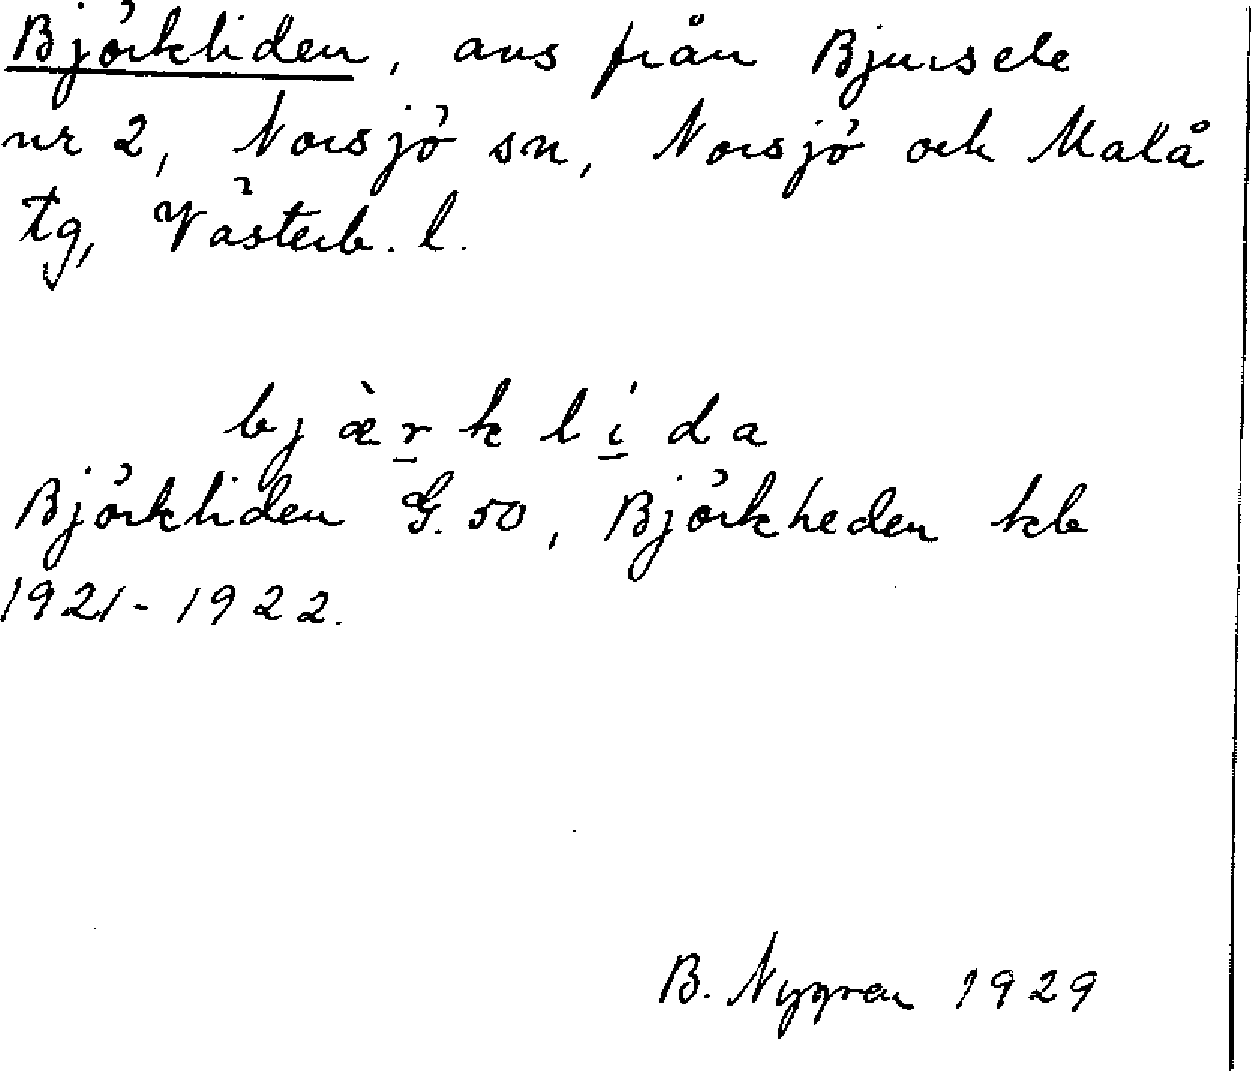 Björkliden, avs från Bjursele
nr 2, Norsjö sn, Norsjö och Malå
tg, Västerb. l.
bjæ̀r̲klí̲da
Björkliden G. 50, Björkheden kb
1921-1922.
B. Nygren 1929